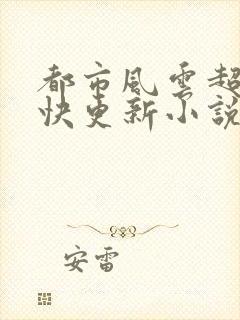 都市風雲超
快更新小說
安雷